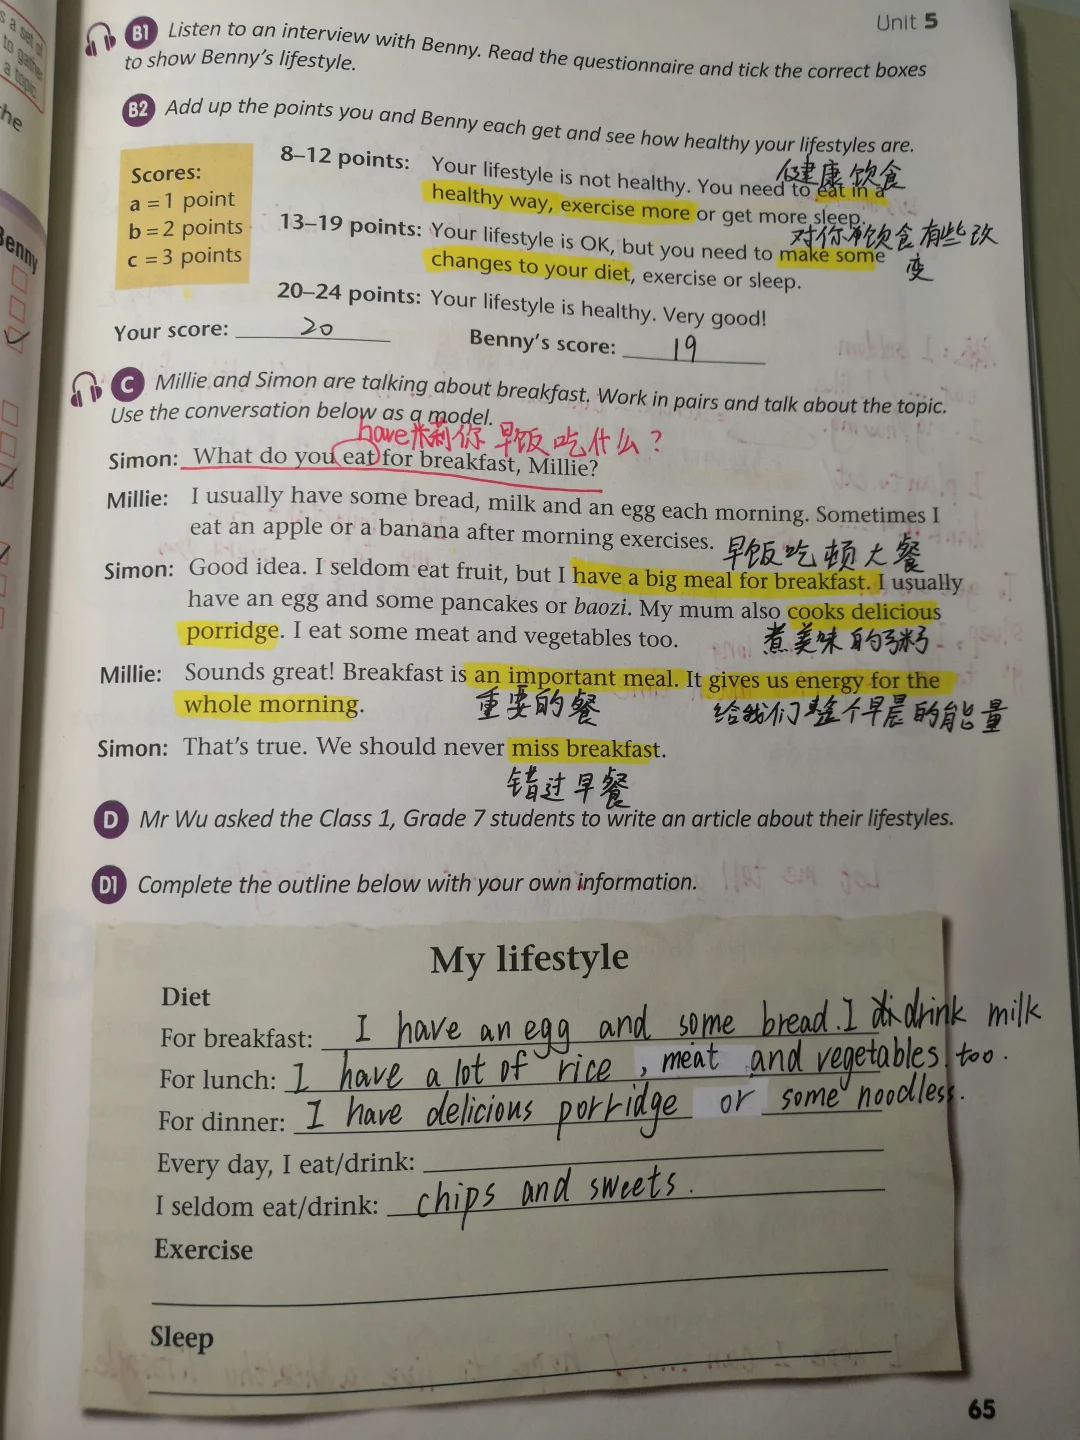 s a set of
to gather
a topic
the
Benny
Unit 5
B1 Listen to an interview with Benny. Read the questionnaire and tick the correct boxes
to show Benny's lifestyle.
B2 Add up the points you and Benny each get and see how healthy your lifestyles are.
Scores:
a = 1 point
b = 2 points
c = 3 points
8–12 points: Your lifestyle is not healthy. You need to eat in a
健康饮食
healthy way, exercise more or get more sleep.
13–19 points: Your lifestyle is OK, but you need to make some
对你的饮食有些改
变
changes to your diet, exercise or sleep.
20–24 points: Your lifestyle is healthy. Very good!
Your score: 20
Benny's score: 19
C Millie and Simon are talking about breakfast. Work in pairs and talk about the topic.
Use the conversation below as a model.
have米莉你早饭吃什么？
Simon: What do you eat for breakfast, Millie?
Millie: I usually have some bread, milk and an egg each morning. Sometimes I
eat an apple or a banana after morning exercises.
早饭吃顿大餐
Simon: Good idea. I seldom eat fruit, but I have a big meal for breakfast. I usually
have an egg and some pancakes or baozi. My mum also cooks delicious
porridge. I eat some meat and vegetables too.
煮美味的粥
Millie: Sounds great! Breakfast is an important meal. It gives us energy for the
whole morning.
重要的餐
给我们整个早晨的能量
Simon: That's true. We should never miss breakfast.
错过早餐
D Mr Wu asked the Class 1, Grade 7 students to write an article about their lifestyles.
D1 Complete the outline below with your own information.
My lifestyle
Diet
For breakfast: I have an egg and some bread. I drink milk
For lunch: I have a lot of rice, meat and vegetables too.
For dinner: I have delicious porridge or some noodless.
Every day, I eat/drink:
I seldom eat/drink: chips and sweets.
Exercise
Sleep
65